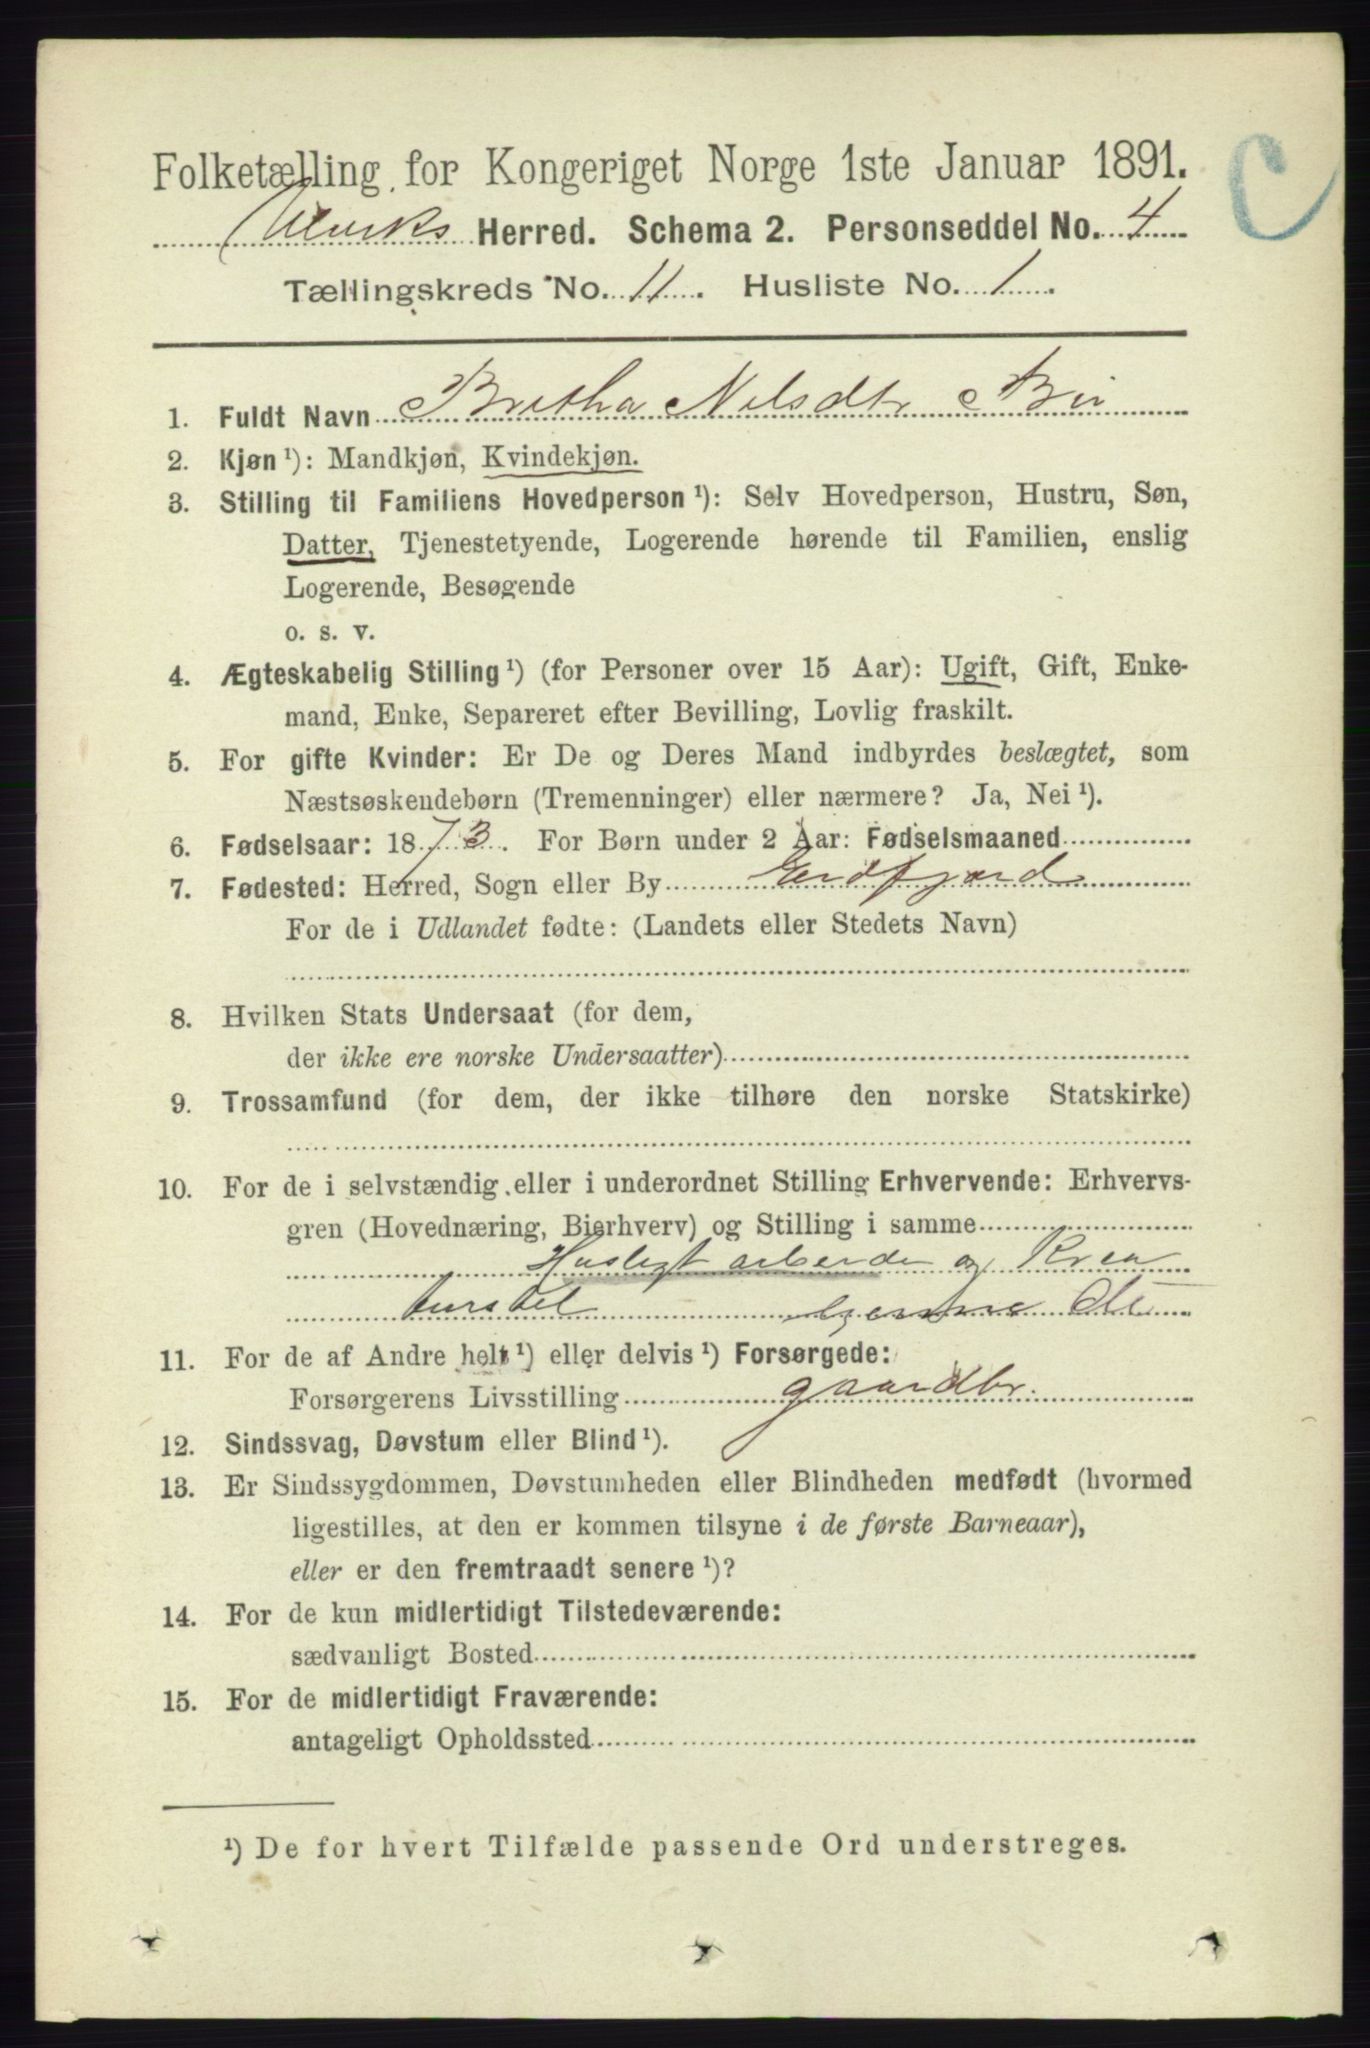 Folketælling for Kongeriget Norge 1ste Januar 1891.
C
Ulviks Herred. Schema 2. Personseddel No. 4
Tællingskreds No. 11. Husliste No. 1.
1. Fuldt Navn Britha Nilsdtr
2. Kjøn ¹): Mandkjøn, Kvindekjøn.
3. Stilling til Familiens Hovedperson ¹): Selv Hovedperson, Hustru, Søn,
Datter, Tjenestetyende, Logerende hørende til Familien, enslig
Logerende, Besøgende
o. s. v.
4. Ægteskabelig Stilling ¹) (for Personer over 15 Aar): Ugift, Gift, Enke-
mand, Enke, Separeret efter Bevilling, Lovlig fraskilt.
5. For gifte Kvinder: Er De og Deres Mand indbyrdes beslægtet, som
Næstsøskendebørn (Tremenninger) eller nærmere? Ja, Nei ¹).
6. Fødselsaar: 1873. For Børn under 2 Aar: Fødselsmaaned
7. Fødested: Herred, Sogn eller By Eidfjord
For de i Udlandet fødte: (Landets eller Stedets Navn)
8. Hvilken Stats Undersaat (for dem,
der ikke ere norske Undersaatter)
9. Trossamfund (for dem, der ikke tilhøre den norske Statskirke)
10. For de i selvstændig eller i underordnet Stilling Erhvervende: Erhvervs-
gren (Hovednæring, Bierhverv) og Stilling i samme
Husligt arbeide og Krea
turstel
11. For de af Andre helt ¹) eller delvis ¹) Forsørgede:
Forsørgerens Livsstilling gaardbr.
12. Sindssvag, Døvstum eller Blind ¹).
13. Er Sindssygdommen, Døvstumheden eller Blindheden medfødt (hvormed
ligestilles, at den er kommen tilsyne i de første Barneaar),
eller er den fremtraadt senere ¹)?
14. For de kun midlertidigt Tilstedeværende:
sædvanligt Bosted
15. For de midlertidigt Fraværende:
antageligt Opholdssted
¹) De for hvert Tilfælde passende Ord understreges.